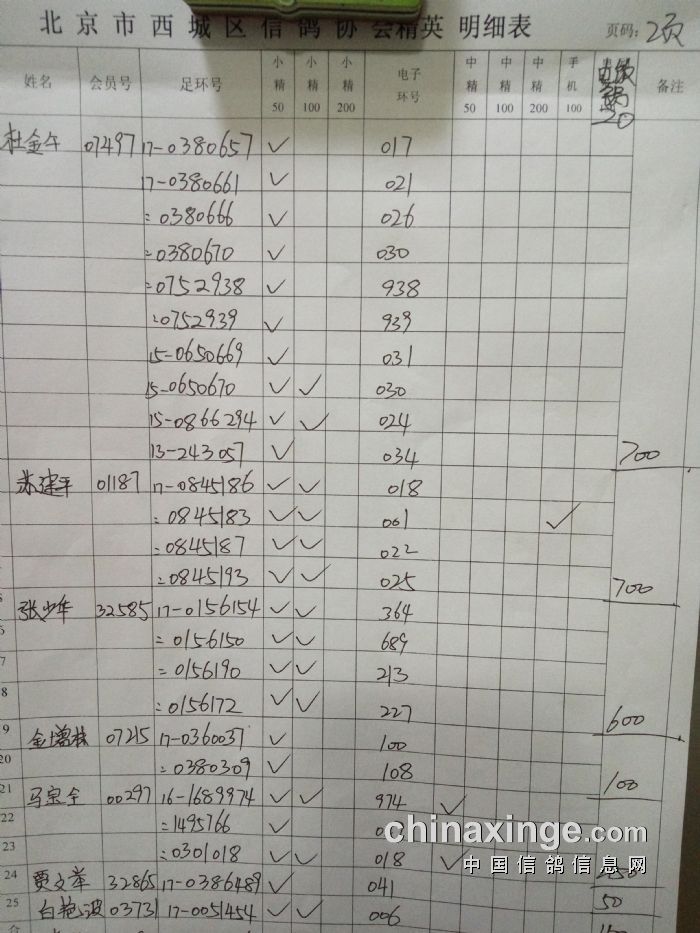 北京市西城区信鸽协会精英 明细表
页码：2页
姓名 会员号 足环号 小精50 小精100 小精200 电子环号 中精50 中精100 中精200 手机100 20 备注
杜金午 07497 17-0380657 ✓ 017
17-0380661 ✓ 021
：0380666 ✓ 026
：0380670 ✓ 030
：0752938 ✓ 938
：0752939 ✓ 939
15-0650669 ✓ 031
15-0650670 ✓ ✓ 030
15-0866294 ✓ ✓ 024
13-243057 ✓ 034 700
建平 01187 17-0845186 ✓ ✓ 018
：0845183 ✓ ✓ 001 ✓
：0845187 ✓ ✓ 022
：0845193 ✓ ✓ 025 700
张少华 32585 17-0156154 ✓ ✓ 364
：0156150 ✓ ✓ 689
7 ：0156190 ✓ ✓ 213
8 ：0156172 ✓ ✓ 227 600
9 金增林 07215 17-0360037 ✓ 100
20 ：0380309 ✓ 108 100
21 马宝全 00297 16-1689974 ✓ ✓ 974 ✓
22 ：1495766 ✓
23 ：0301018 ✓ ✓ 018 ✓
chinaxinge.com
中国信鸽信息网
24 贾文举 32865 17-0386489 ✓ 041 50
25 白艳波 03731 17-0051454 ✓ ✓ 006